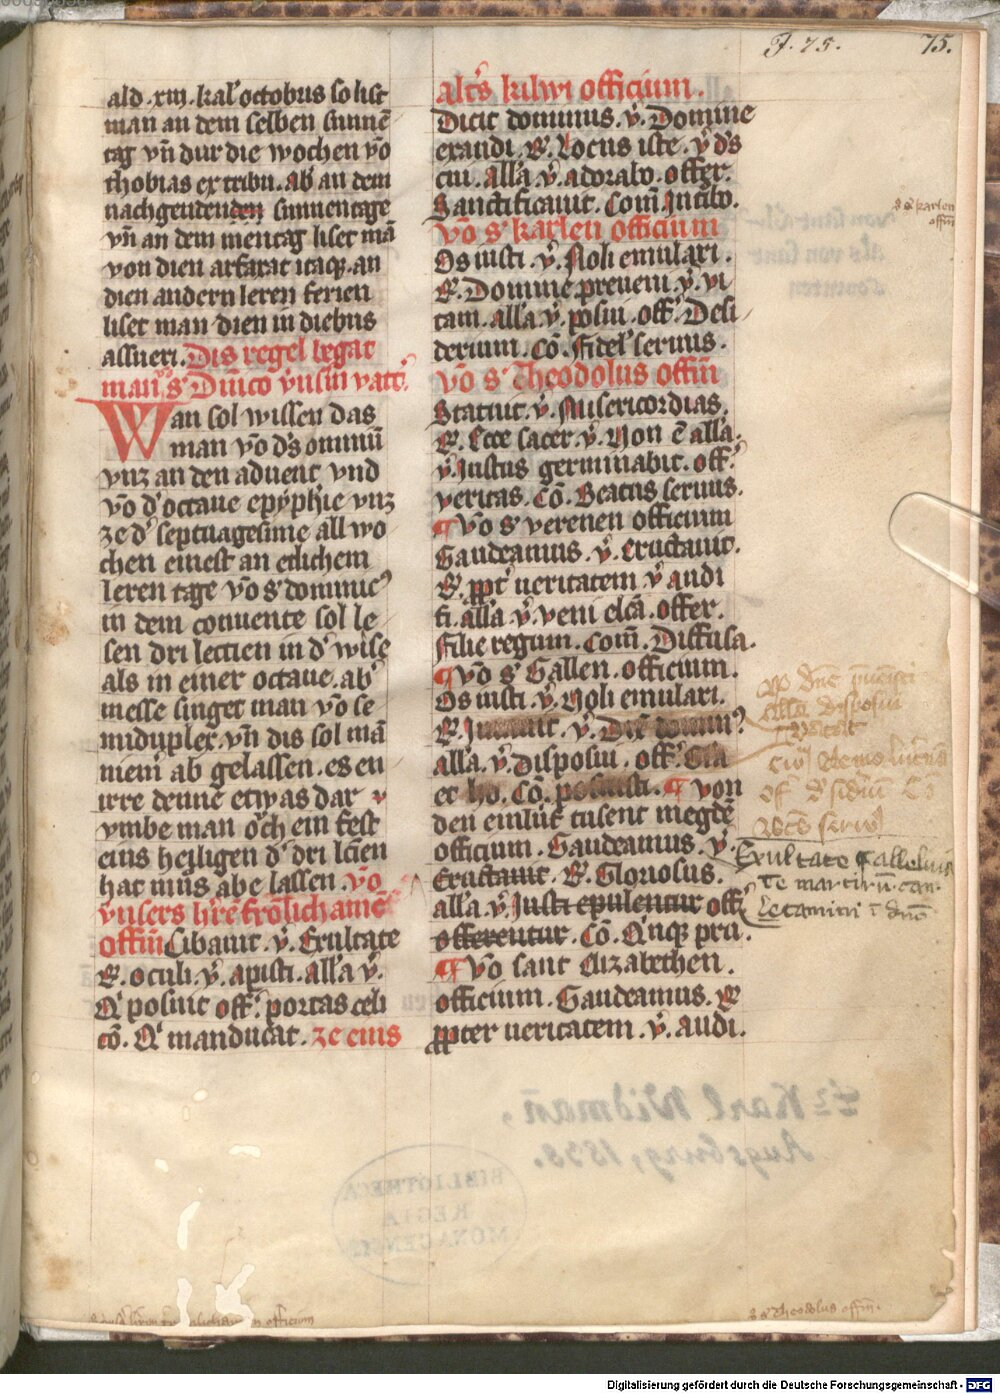 F. 75.
75.
ald .xiiı. kal' octobus so list
man an dem selben sunnē
tag vn̄ dur die wochen vō
thobias ex tribu. ab' an dem
nachgendenden sunnentage
vn̄ an dem mentag liset mā
von dien arfarat itaqꝫ. an
dien andern leren ferien
liset man dien in diebus
assueri. Dis regel legat
man s' Dm̄ico vnsm vatt'
Wan sol wissen das
man vō ds omniū
vnz an den aduent vnd
vō d' octaue epyphie vnz
ze d' septuagesime all wo
chen einest an etlichem
leren tage vō s' dominic'
in dem conuente sol le
sen dri lectien in d' wise
als in einer octaue. ab'
messe singet man vō se
midupler. vn̄ dis sol mā
niem' ab gelassen. es en
irre denne etwas dar v
vmbe man och ein fest
eins heiligen d' dri lc̄ien
hat mus abe lassen. vō
vnsers h're frōlichamē
offm̄ Cibauit. v̄. Exultate
R. oculi. v̄. apisti. all'a v̄.
Q' posuit off'. portas celi
cō. Q' manducat. ze eins
alt's kilwi officium.
Dicit dominus. v̄. Domine
exaudi. R. Locus iste. v̄ d's
cui. all'a. v̄. adorabo. offer.
Sanctificauit. Com̄ Intēbo.
Vō s' karlen officium
Os iusti. v̄. Noli emulari.
R. Domine preueni. v̄. vi
tam. all'a. v̄. posui. off'. Desi
derium. Cō. Fidel' seruus.
Vō s' Theodolus offm̄
Statuit. v̄. Misericordias.
R. Ecce sacer. v̄. Non ē all'a.
v̄. Iustus germinabit. off'.
veritas. Cō. Beatus seruus.
¶ Vō s' verenen officium
Gaudeamus. v̄. eructauit.
R. ppt' ueritatem v̄ audi
fi. all'a. v̄. veni elc̄a. offer.
Filie regum. Com̄. Diffusa.
¶ Vō s' Gallen. officium.
Os iusti. v̄. Noli emulari.
R. v̄.
all'a. v̄. disposui. off'.
Cō. ¶ von
den einlūt tusent megdē
officium. Gaudeamus. v̄.
Eructauit. R. Gloriosus.
all'a. v̄. Iusti epulentur off'
offerentur. Cō. Q'nqꝫ pru.
¶ Vō sant Elizabethen.
officium. Gaudeamus. R
ppter ueritatem. v̄. audi.
s karlen
offm̄
R Dn̄e
all'a disposui
of'
Exultate Alleluia
Te martirū can
Letamini i dn̄o
officium
s Theodolus offm̄.
Dr Karl Widmañ,
Augsburg, 1838.
BIBLIOTHECA
REGIA
MONACENSIS
Digitalisierung gefördert durch die Deutsche Forschungsgemeinschaft - DFG